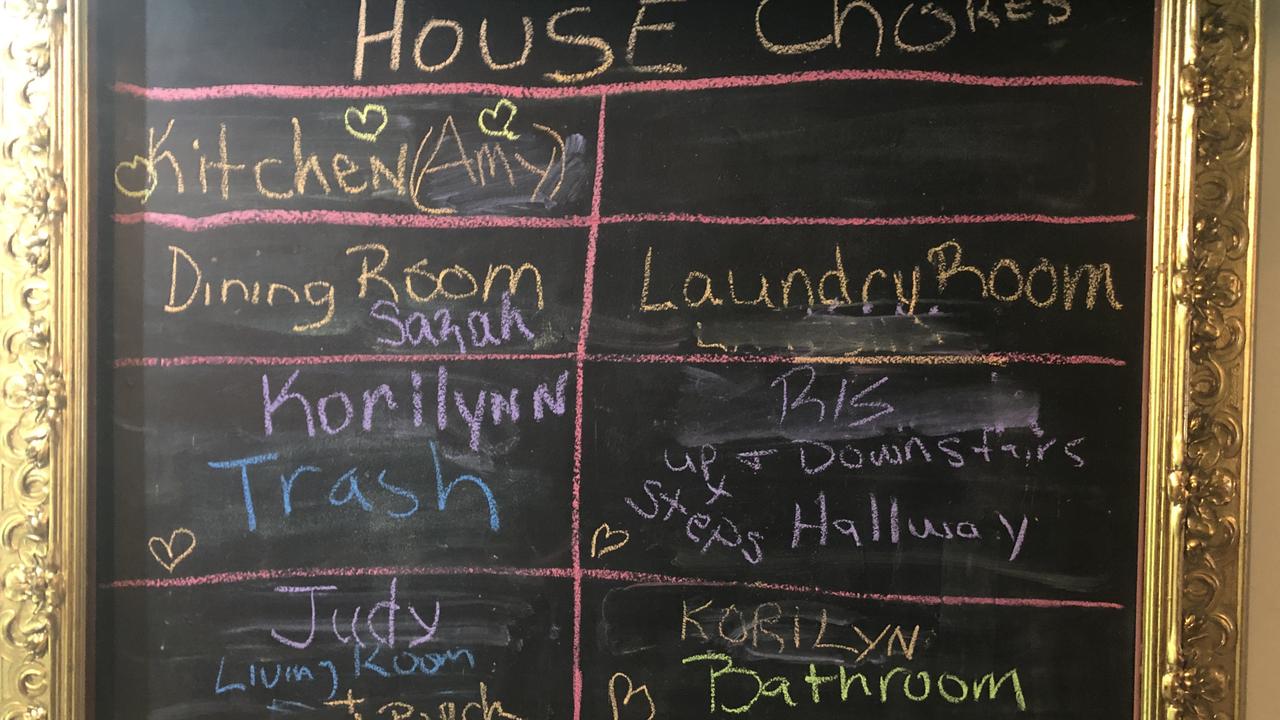 HOUSE CHORES
Kitchen (Amy)
Dining Room
Sarah
Laundry Room
Korilynn
Trash
RIS
up + Downstairs
Steps + Hallway
Judy
Living Room
+ Porch
KORILYN
Bathroom